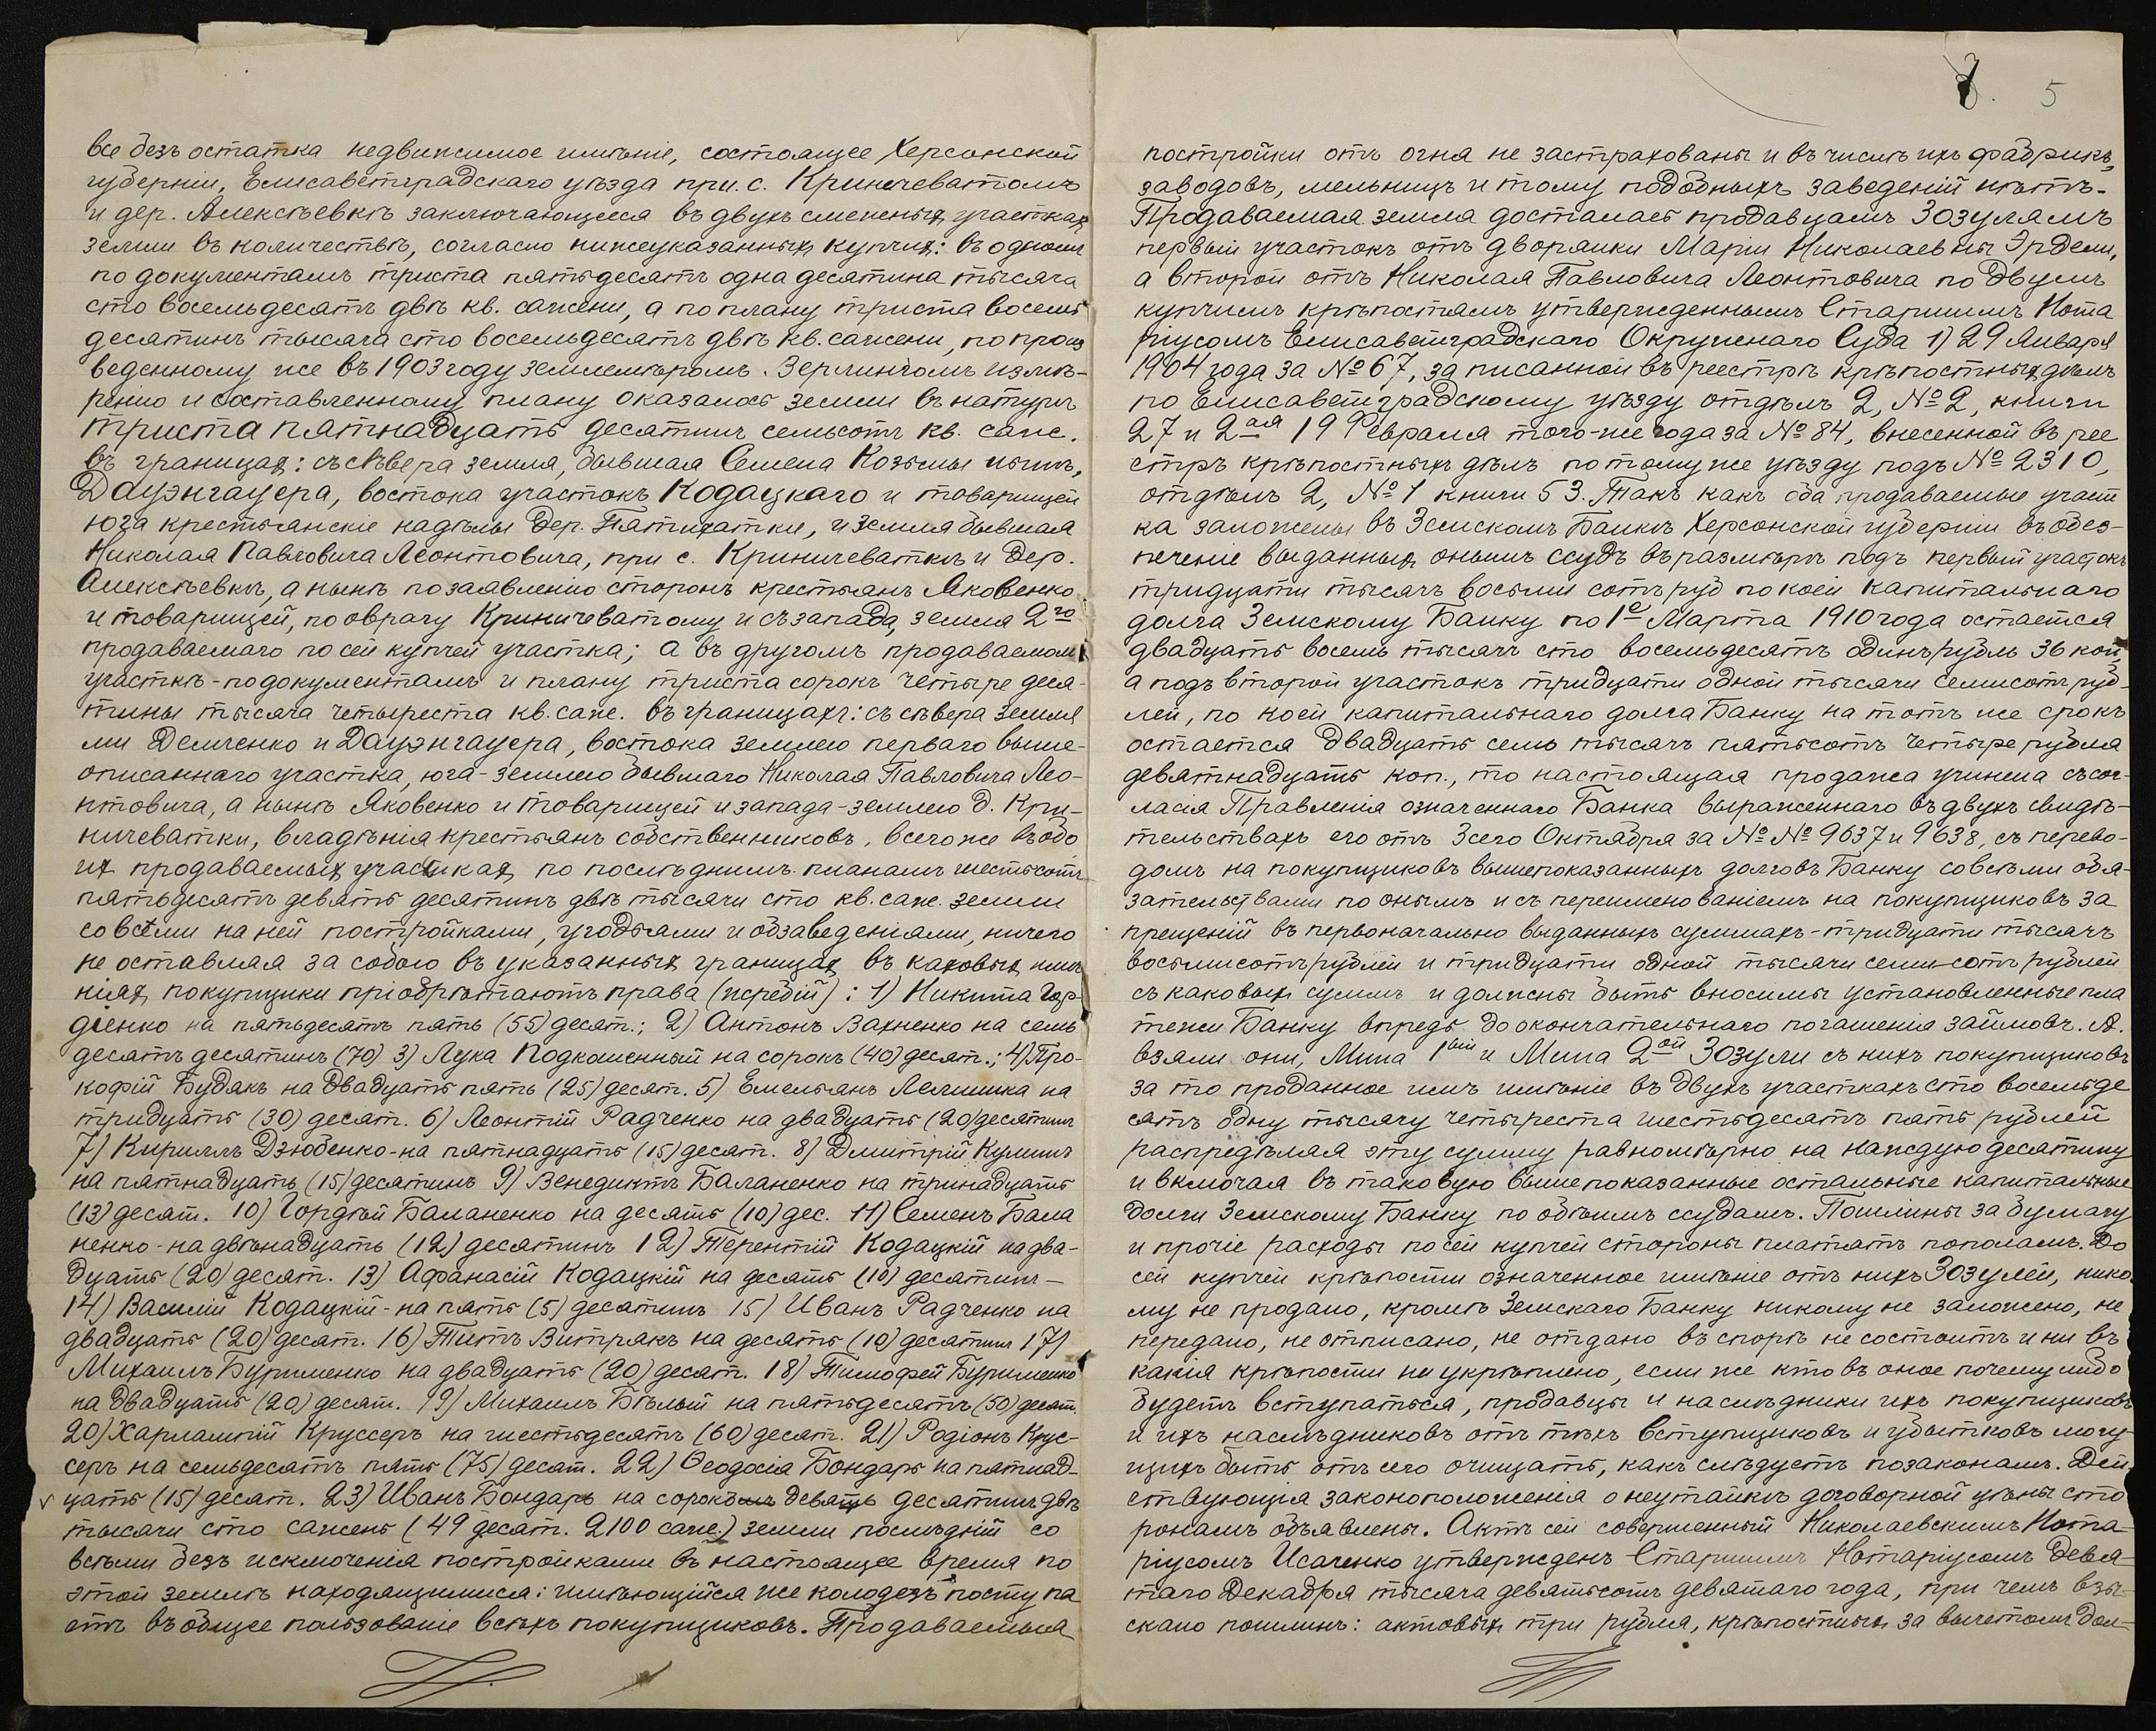 все безъ остатка недвижимое имѣніе, состоящее Херсонской
губерніи, Елисаветградскаго уѣзда при с. Криничеватомъ
и дер. Алексѣевкѣ заключающееся въ двухъ смежныхъ участкахъ
земли въ количествѣ, согласно нижеуказанныхъ купчихъ: въ одномъ
по документамъ триста пятьдесятъ одна десятина тысяча
сто восемьдесятъ двѣ кв. сажени, а по плану триста восемь
десятинъ тысяча сто восемьдесятъ двѣ кв. сажени, по произ
веденному же въ 1903 году землемѣромъ. Зерлингомъ измѣ-
ренію и составленному плану оказалось земли въ натурѣ
триста пятнадцать десятинъ семьсотъ кв. саж.
въ границахъ: съ сѣвера земля, бывшая Семена Козьмы нынѣ,
Дауэнгауера, востока участокъ Кодацкаго и товарищей
юга крестьянскіе надѣлы дер. Пятихатки, и земля бывшая
Николая Павловича Леонтовича, при с. Криничеваткѣ и дер.
Алексѣевкѣ, а нынѣ по заявленію сторонъ крестьянъ Яковенко
и товарищей, по оврагу Криничеватому и съ запада, земля 2го
продаваемаго по сей купчей участка; а въ другомъ продаваемомъ
участкѣ - по документамъ и плану триста сорокъ четыре деся-
тины тысяча четыреста кв. саж. въ границахъ: съ сѣвера земля
ми Демченко и Дауэнгауера, востока землею перваго выше-
описаннаго участка, юга - землею бывшаго Николая Павловича Лео-
нтовича, а нынѣ Яковенко и товарищей и запада - землею д. Кри-
ничеватки, владѣнія крестьянъ собственниковъ, всего же въ обо
ихъ продаваемыхъ участкахъ по послѣднимъ планамъ шестьсотъ
пятьдесятъ девять десятинъ двѣ тысячи сто кв. саж. земли
со всѣми на ней постройками, угодьями и обзаведеніями, ничего
не оставляя за собою въ указанныхъ границахъ въ каковыхъ имѣ
ніяхъ покупщики пріобрѣтаютъ права (жребій): 1) Никита Гор-
діенко на пятьдесятъ пять (55) десят.; 2) Антонъ Вахненко на семь
десятъ десятинъ (70) 3) Лука Подкошенный на сорокъ (40) десят.; 4) Про-
кофій Будакъ на двадцать пять (25) десят. 5) Емельянъ Лелишка на
тридцать (30) десят. 6) Леонтій Радченко на двадцать (20) десятинъ
7) Кириллъ Дзюбенко - на пятнадцать (15) десят. 8) Дмитрій Кулишъ
на пятнадцать (15) десятинъ 9) Венедиктъ Баланенко на тринадцать
(13) десят. 10) Гордѣй Баланенко на десять (10) дес. 11) Семенъ Бала
ненко - на двѣнадцать (12) десятинъ 12) Терентій Кодацкій на два-
дцать (20) десят. 13) Афанасій Кодацкій на десять (10) десятинъ —
14) Василій Кодацкій - на пять (5) десятинъ 15) Иванъ Радченко на
двадцать (20) десят. 16) Титъ Витрякъ на десять (10) десятинъ 17)
Михаилъ Бурименко на двадцать (20) десят. 18) Тимофей Бурименко
на двадцать (20) десят. 19) Михаилъ Бѣлый на пятьдесятъ (50) десят.
20) Харлампій Круссеръ на шестьдесятъ (60) десят. 21) Родіонъ Крус-
серъ на семьдесятъ пять (75) десят. 22) Ѳеодосія Бондарь на пятнад-
цать (15) десят. 23) Иванъ Бондарь на сорокъ девять десятинъ двѣ
тысячи сто сажень (49 десят. 2100 саж.) земли послѣдній со
всѣми безъ исключенія постройками въ настоящее время по
этой землѣ находящимися: имѣющійся же колодезь поступа
етъ въ общее пользованіе всѣхъ покупщиковъ. Продаваемыя
5
постройки отъ огня не застрахованы и въ числѣ ихъ фабрикъ,
заводовъ, мельницъ и тому подобныхъ заведеній нѣтъ.-
Продаваемая земля досталась продавцамъ Зозулямъ
первый участокъ отъ дворянки Маріи Николаевны Эрдели,
а второй отъ Николая Павловича Леонтовича по двумъ
купчимъ крѣпостямъ утвержденнымъ Старшимъ Нота
ріусомъ Елисаветградскаго Окружнаго Суда 1) 29 Января
1904 года за № 67, записанной въ реестрѣ крѣпостныхъ дѣлъ
по Елисаветградскому уѣзду отдѣлъ 2, № 2, книги
27 и 2ая 19 Февраля того-же года за № 84, внесенной въ рее
стръ крѣпостныхъ дѣлъ по тому же уѣзду подъ № 2310,
отдѣлъ 2, № 1 книги 53. Такъ какъ оба продаваемые участ
ка заложены въ Земскомъ Банкѣ Херсонской губерніи въ обез-
печеніе выданныхъ онымъ ссудъ въ размѣрѣ подъ первый участокъ
тридцати тысячъ восьми сотъ руб по коей капитальнаго
долга Земскому Банку по 1е Марта 1910 года остается
двадцать восемь тысячъ сто восемьдесятъ одинъ рубль 36 коп,
а подъ второй участокъ тридцати одной тысячи семисотъ руб-
лей, по коей капитальнаго долга Банку на тотъ же срокъ
остается двадцать семь тысячъ пятьсотъ четыре рубля
девятнадцать коп., то настоящая продажа учинена съ сог-
ласія Правленія означеннаго Банка выраженнаго въ двухъ свидѣ-
тельствахъ его отъ 3сего Октября за №№ 9637 и 9638, съ перево-
домъ на покупщиковъ вышепоказанныхъ долговъ Банку со всѣми обя-
зательствами по онымъ и съ переименованіемъ на покупщиковъ за
прещеній въ первоначально выданныхъ суммахъ - тридцати тысячъ
восьмисотъ рублей и тридцати одной тысячи семи-сотъ рублей
съ каковыхъ суммъ и должны быть вносимы установленные пла
тежи Банку впредь до окончательнаго погашенія займовъ. А.
взяли они, Мина 1вый и Мина 2ой Зозули съ нихъ покупщиковъ
за то проданное имъ имѣніе въ двухъ участкахъ сто восемьде
сятъ одну тысячу четыреста шестьдесятъ пять рублей
распредѣляя эту сумму равномѣрно на каждую десятину
и включая въ таковую вышепоказанные остальные капитальные
долги Земскому Банку по обѣимъ ссудамъ. Пошлины за бумагу
и прочіе расходы по сей купчей стороны платятъ пополамъ. До
сей купчей крѣпости означенное имѣніе отъ нихъ Зозулей, нико
му не продано, кромѣ Земскаго Банку никому не заложено, не
передано, не отписано, не отдано въ спорѣ не состоитъ и ни въ
какія крѣпости не укрѣплено, если же кто въ оное почему либо
будетъ вступаться, продавцы и наслѣдники ихъ покупщиковъ
и ихъ наслѣдниковъ отъ тѣхъ вступщиковъ и убытковъ могу
щихъ быть отъ сего очищать, какъ слѣдуетъ по законамъ. Дей
ствующія законоположенія о неутайкѣ договорной цѣны сто
ронамъ объявлены. Актъ сей совершенный Николаевскимъ Нота-
ріусомъ Исаченко утвержденъ Старшимъ Нотаріусомъ Девя-
таго Декабря тысяча девятьсотъ девятаго года, при чемъ взы-
скано пошлинъ: актовыхъ три рубля, крѣпостныхъ за вычетомъ дол-